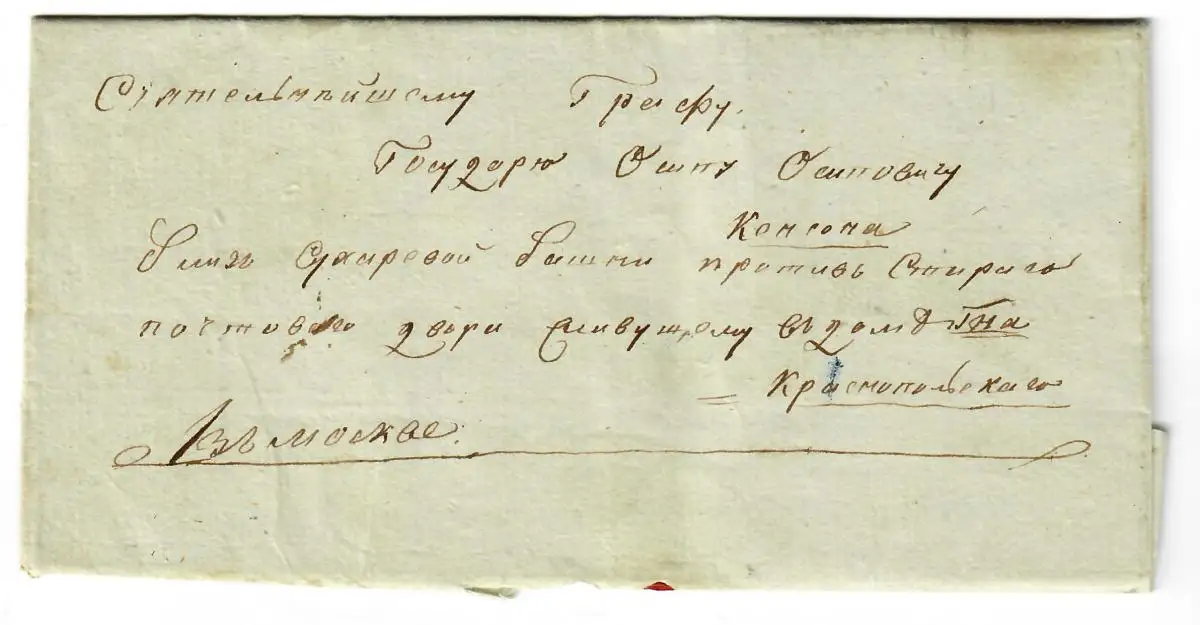 Сіятельнѣйшему Графу.
Государю Осипу Осиповичу
Консона
близь Сухаревой башни противь Стараго
почтоваго двора живущему въ домѣ Гна
Краснопольскаго
Въ москве.